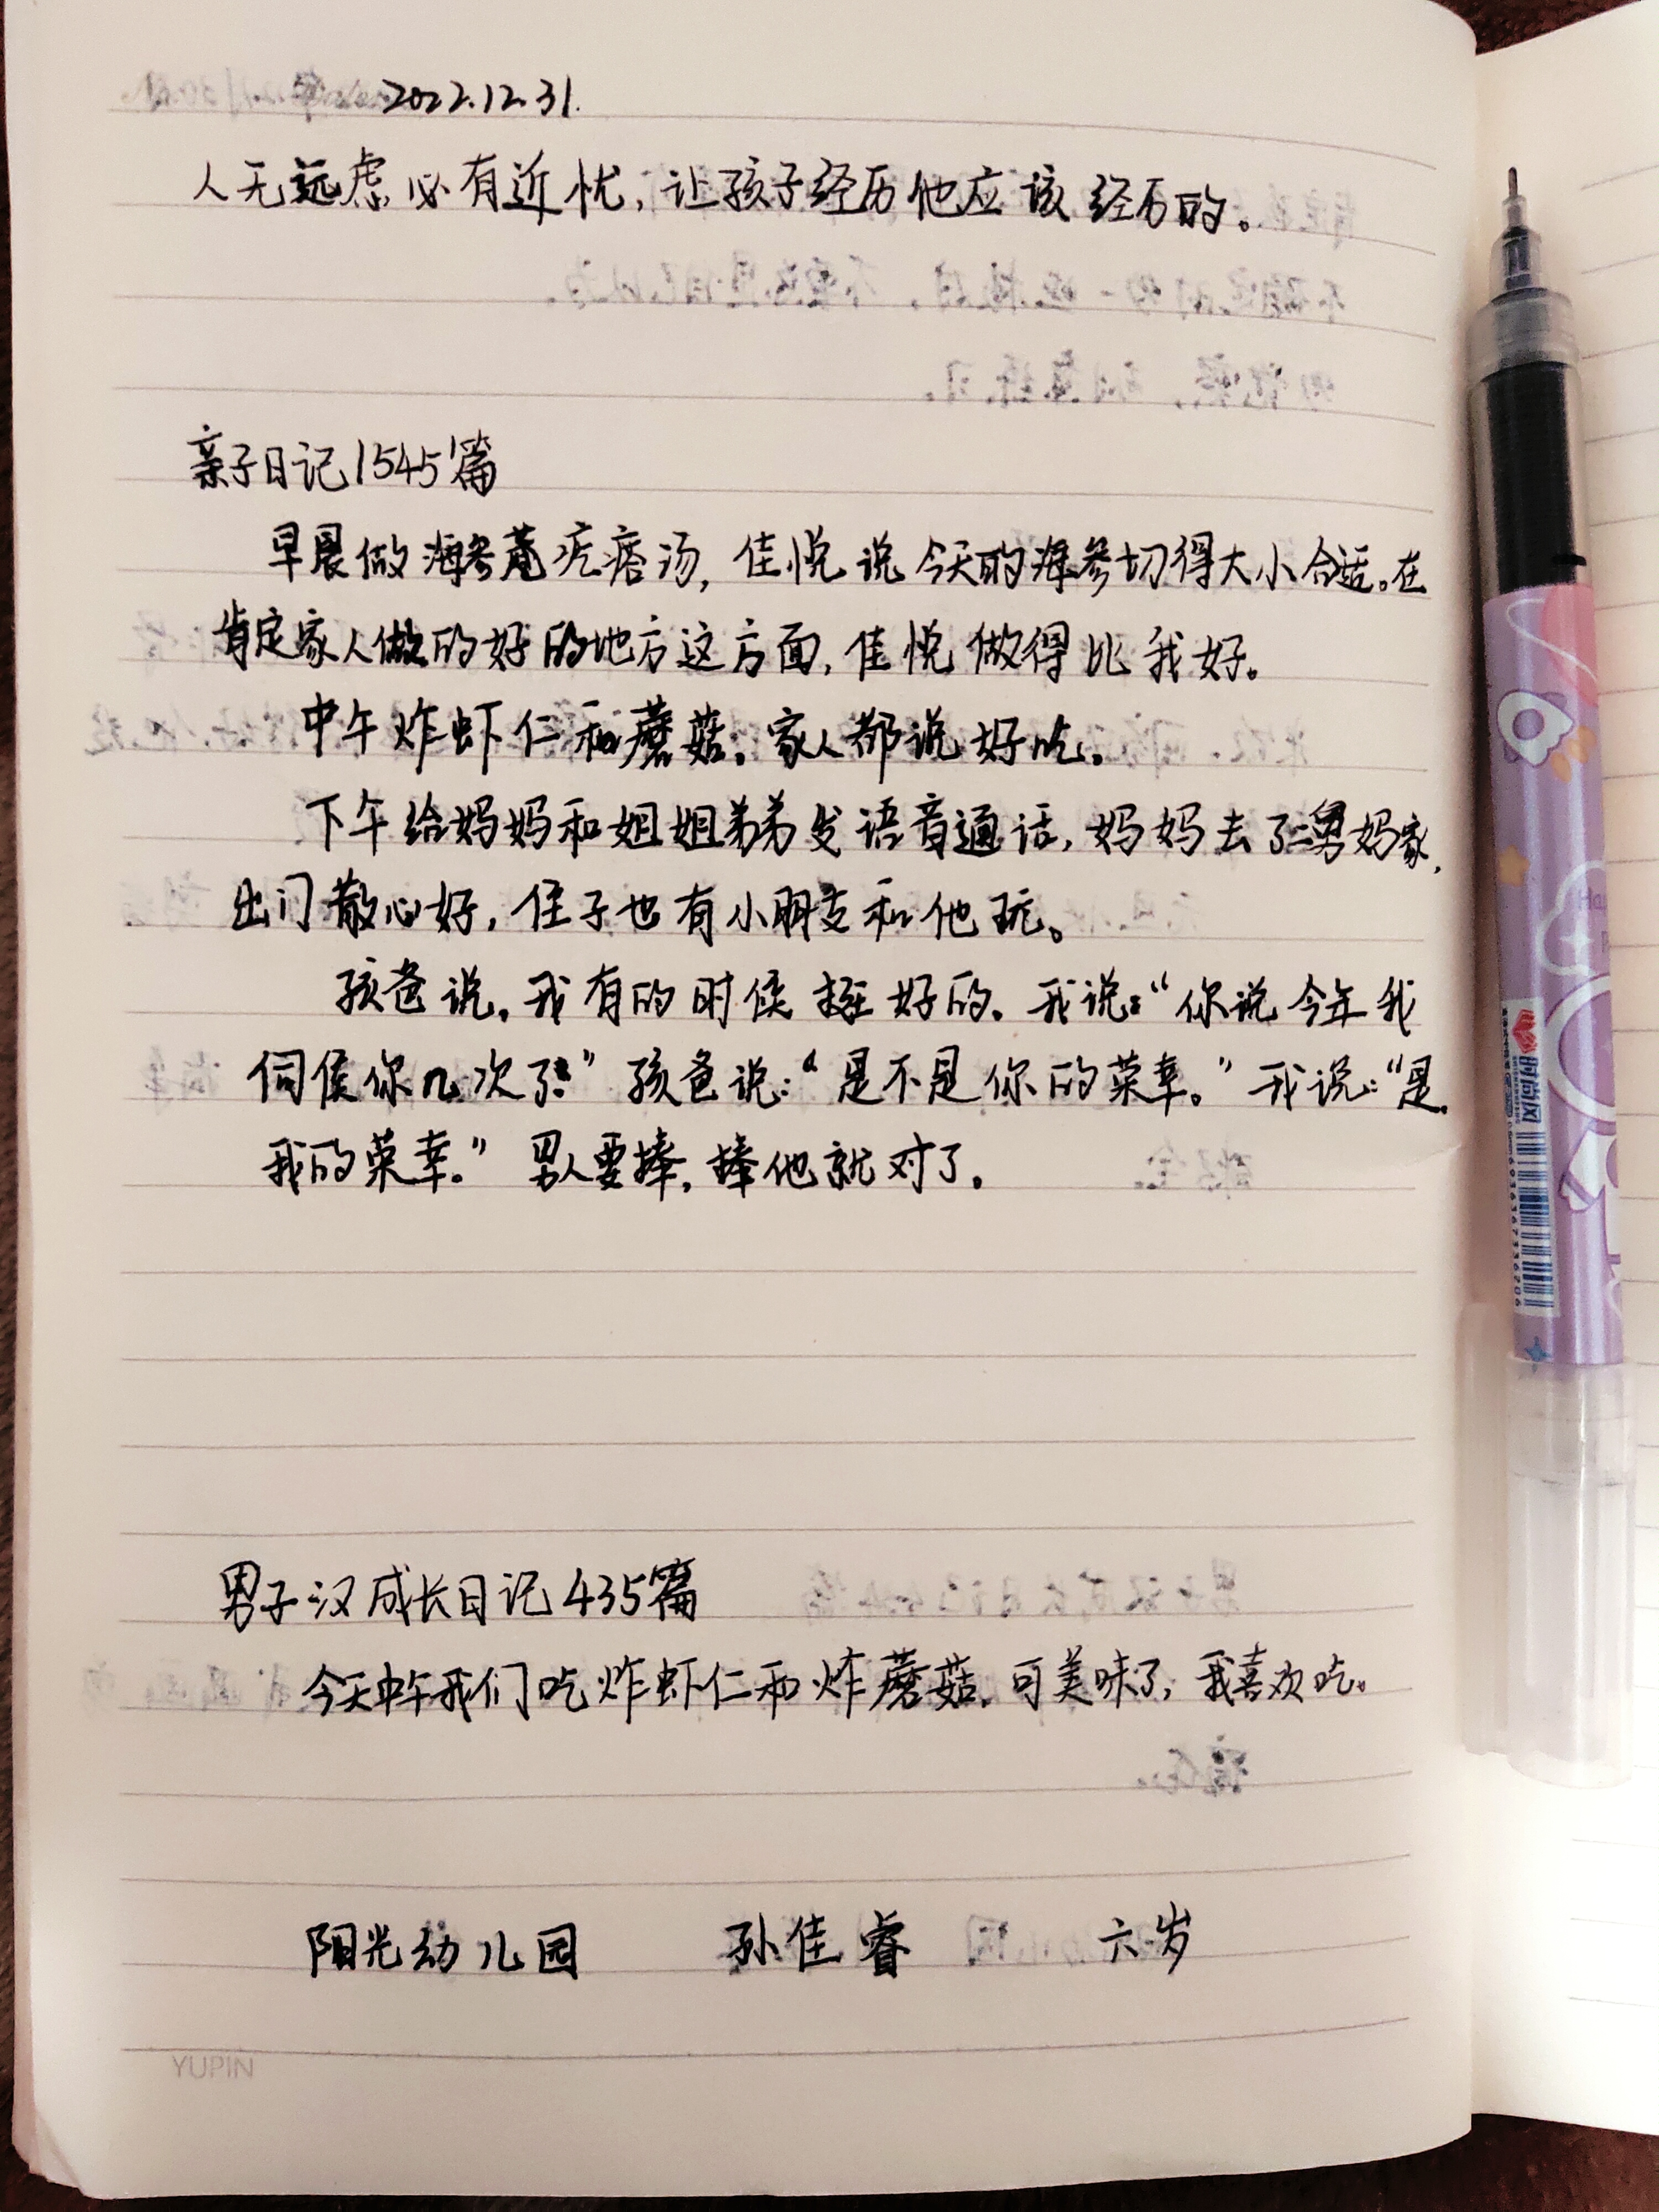 2022.12.31.
人无远虑必有近忧,让孩子经历他应该经历的。
亲子日记1545篇
早晨做海参疙瘩汤,佳悦说今天的海参切得大小合适。在
肯定家人做的好的地方这方面,佳悦做得比我好。
中午炸虾仁和蘑菇。家人都说好吃。
下午给妈妈和姐姐弟弟发语音通话,妈妈去了二舅妈家,
出门散心好,侄子也有小朋友和他玩。
孩爸说,我有的时候挺好的。我说:“你说今年我
伺侯你几次了”孩爸说:“是不是你的荣幸。”我说:“是,
我的荣幸。”男人要捧,捧他就对了。
男子汉成长日记435篇
今天中午我们吃炸虾仁和炸蘑菇,可美味了,我喜欢吃。
阳光幼儿园 孙佳睿 六岁
YUPIN
时尚风